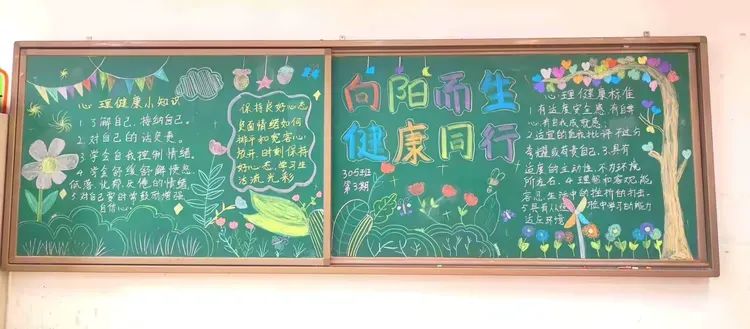 心理健康小知识
1.了解自己,接纳自己。
2.对自己的话负责。
3.学会自我控制情绪。
4.学会舒缓纾解愤怒
低落、忧郁、反倦的情绪
5.对自己要时常鼓励增强
自信心
保持良好心态
负面情绪如何
排平和宽容心
放开,时刻保持
好心态,学习生
活流光彩
向阳而生
健康同行
305班
第3期
心理健康标准
1.有适度安全感,有自尊
心,有自我成就感;
2.适宜的自我批评,不过分
夸耀或苛责自己;3.具有
适度的主动性,不为环境
所左右;4.理智和客观,能
容忍生活中的挫折的打击;
中学习的能力
适应环境